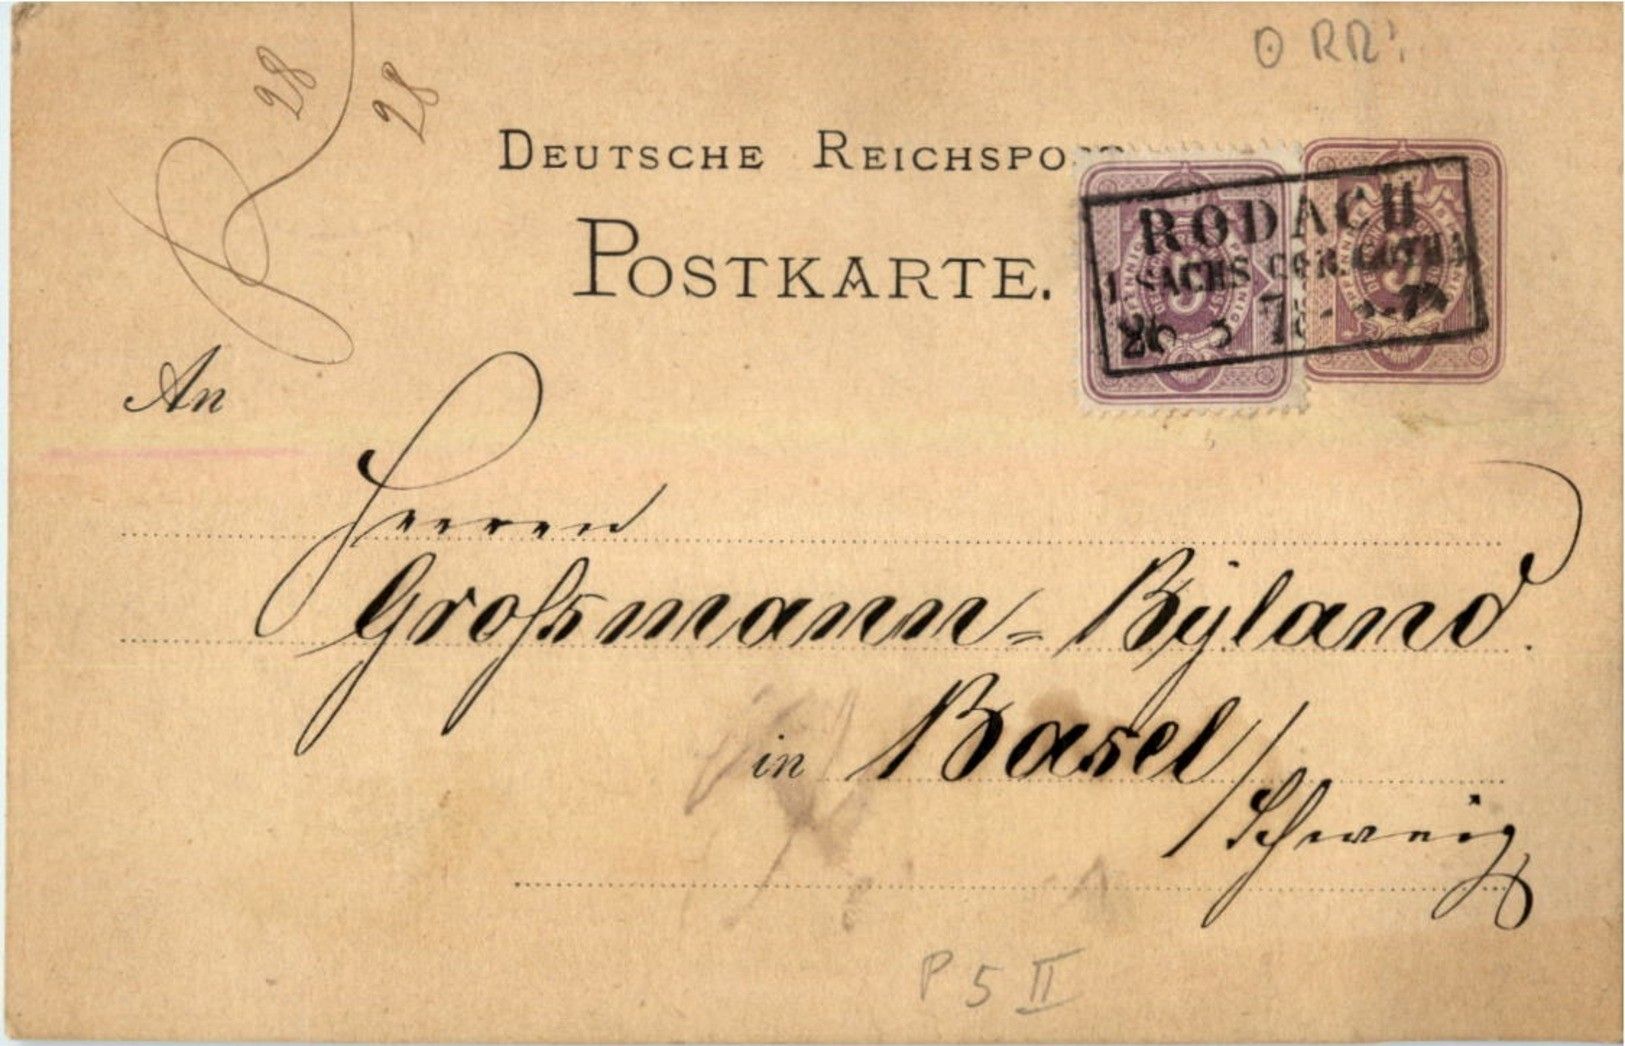 O RR!
28
28
DEUTSCHE REICHSPOST
POSTKARTE.
RODACH
I. SACHS. COB. GOTHA
26 3 78
An
Herren
Großmann-Byland.
in Basel/
Schweiz
P 5 II